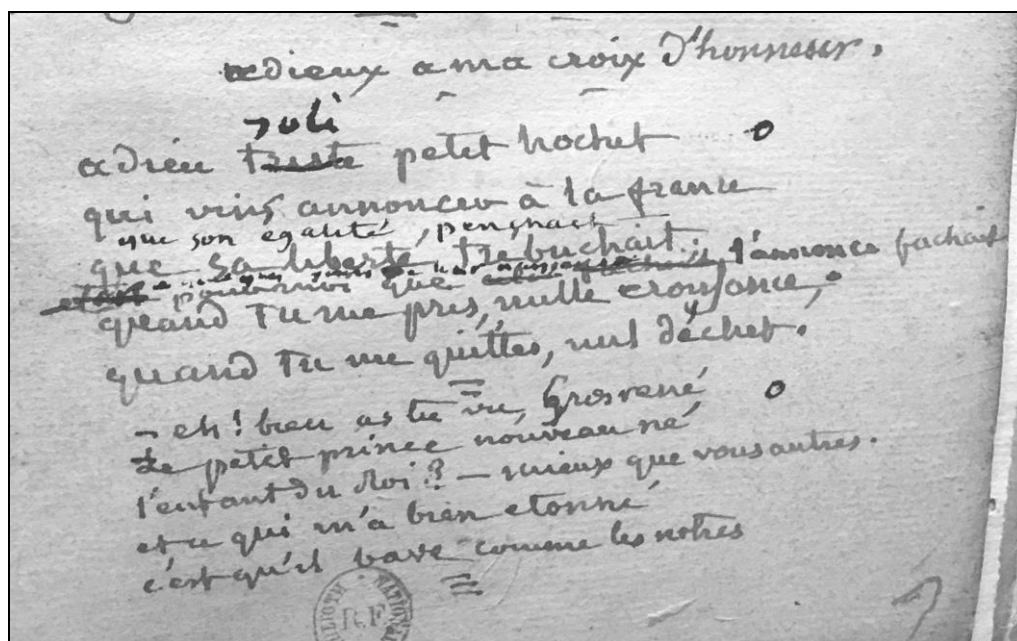 adieux a ma croix d'honneur.
joli
adieu triste petit hochet
qui vins annoncer à la france
que son égalité, penchait
que sa liberté, trebuchait.
et pour moi que l'ancience fachait
quand tu me pris, nulle croissance,
quand tu me quittes, nul déchet.
- eh! bien as tu vu, Gros rené
Le petit prince nouveau né
l'enfant du Roi? - mieux que vous autres.
et ce qui m'a bien etonné
c'est qu'il bave comme les notres
BIBLIOTH NATIONAL
R.F